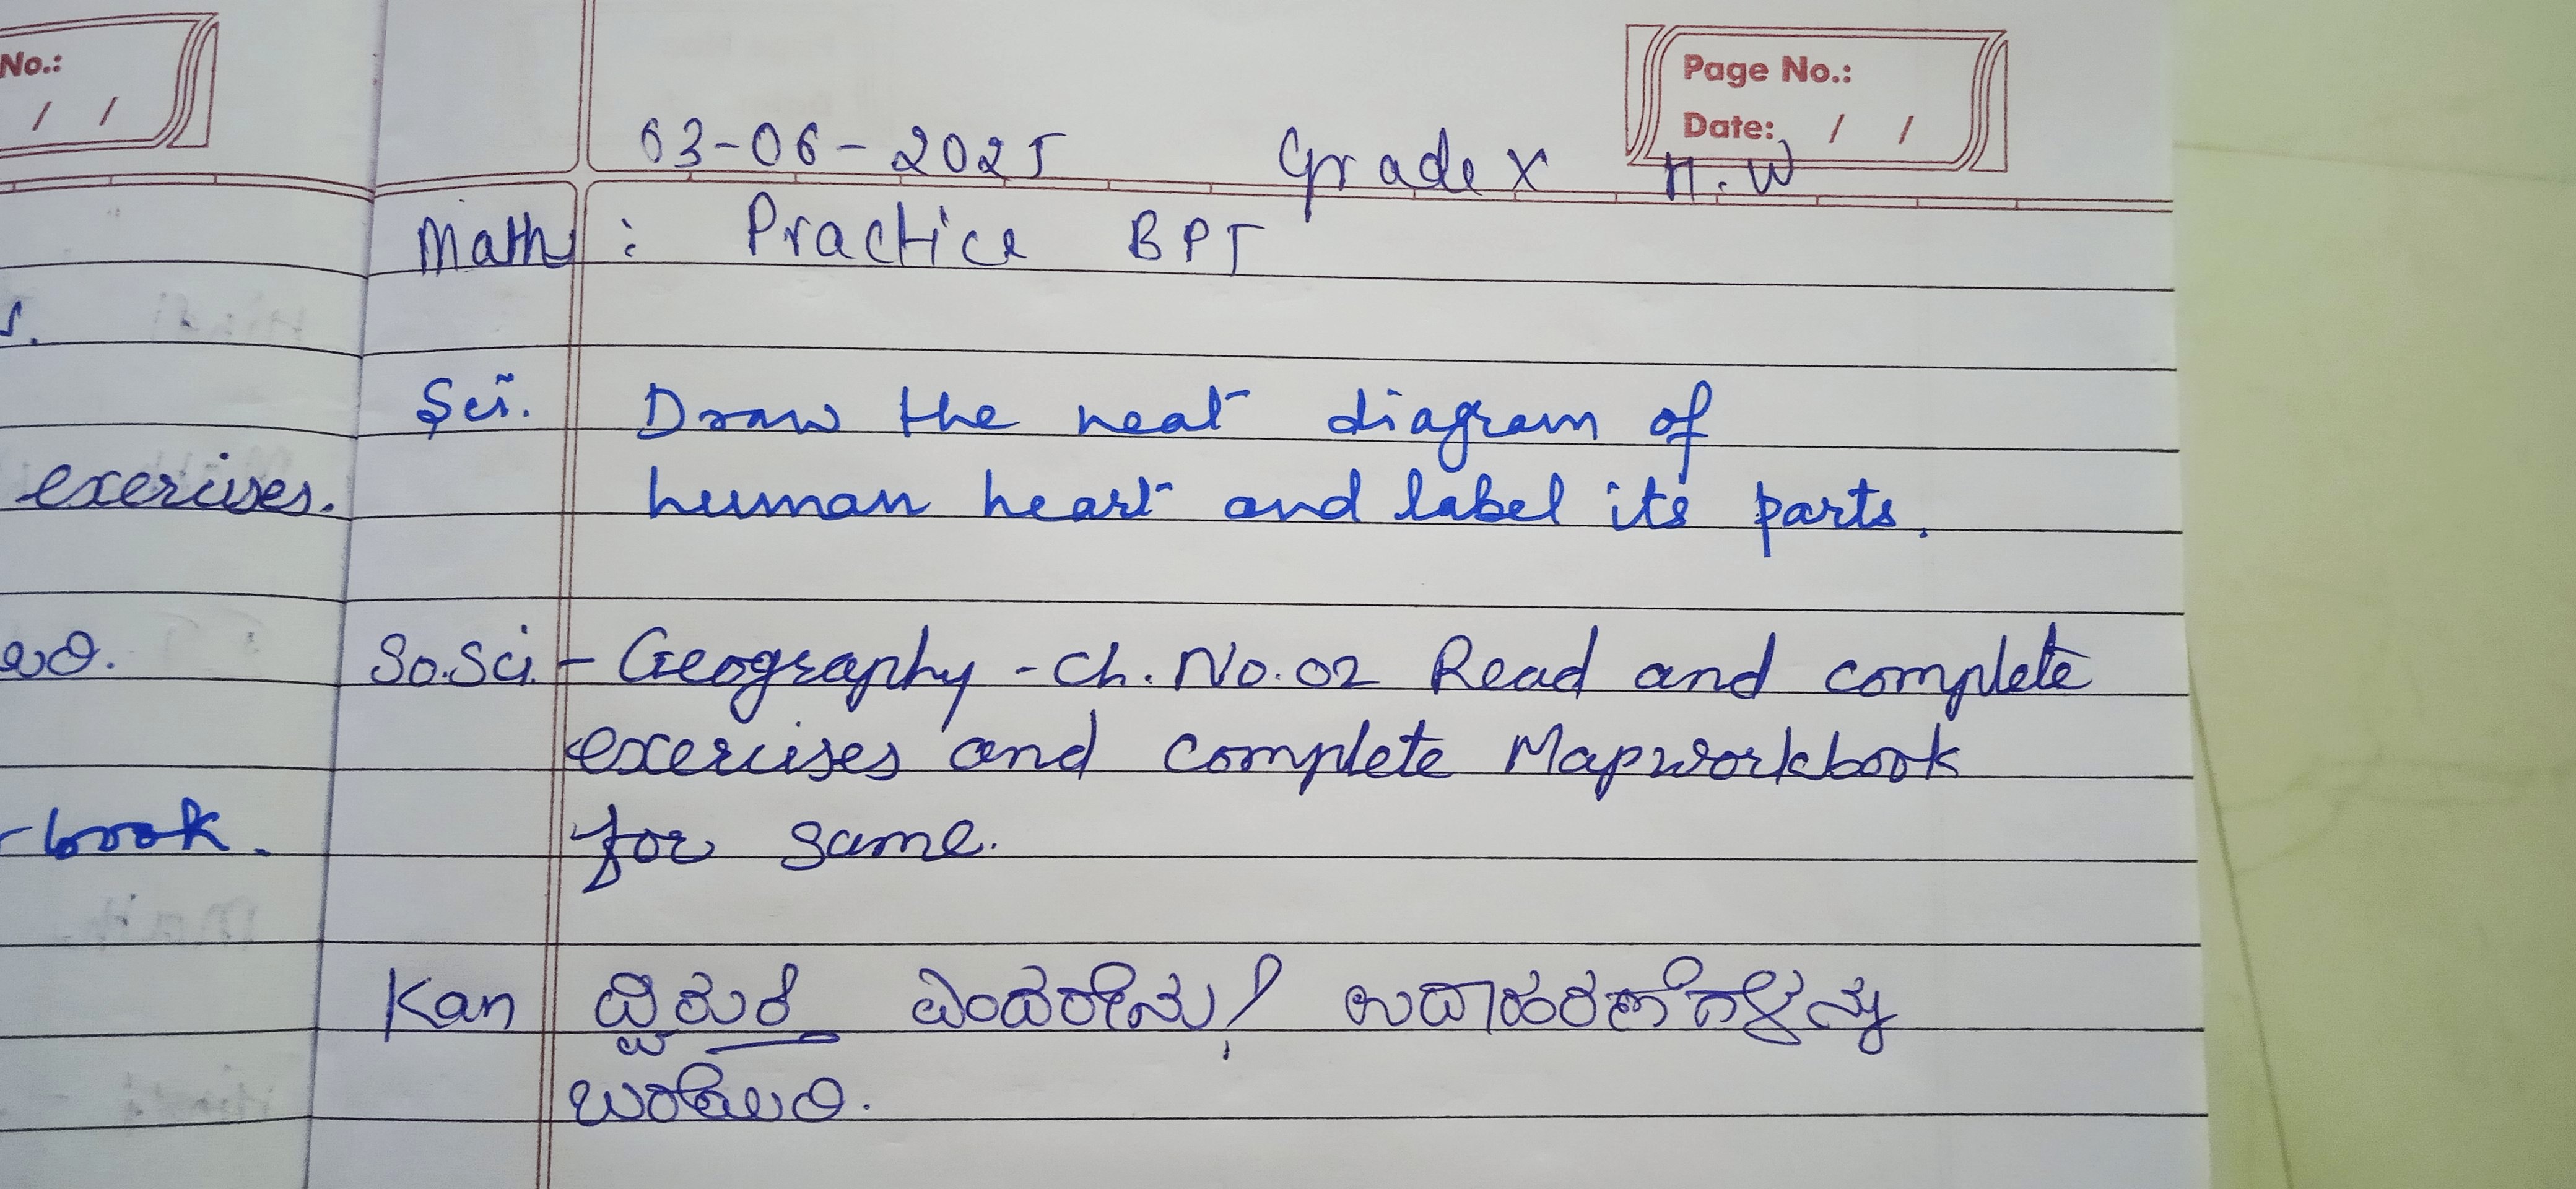 No.:
/ /
Page No.:
Date: / /
03-06-2025 Grade X H.W
Math : Practice BPT
s.
Sci. Draw the neat diagram of
exercises.
human heart and label its parts.
So.Sci - Geography - Ch. No. 02 Read and complete
exercises and complete Mapworkbook
-book.
for same.
Kan ದ್ವಿರುಕ್ತಿ ಎಂದರೇನು? ಉದಾಹರಣೆಗಳನ್ನು
ಬರೆಯಿರಿ.